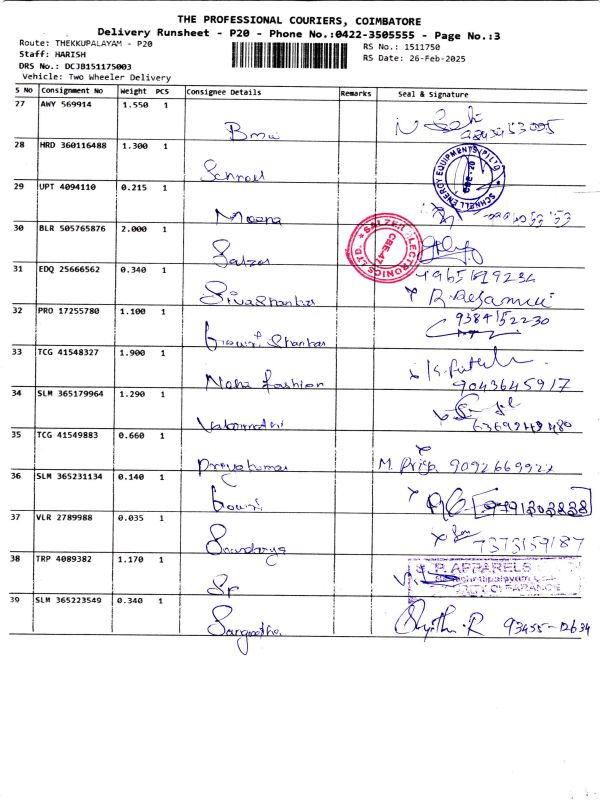 THE PROFESSIONAL COURIERS, COIMBATORE
Delivery Runsheet - P20 - Phone No.:0422-3505555 - Page No.:3
Route: THEKKUPALAYAM - P20
RS No.: 1511750
Staff: HARISH
RS Date: 26-Feb-2025
DRS No.: DCJB151175003
Vehicle: Two Wheeler Delivery
S No Consignment No Weight PCS Consignee Details Remarks Seal & Signature
27 AWY 569914 1.550 1
28 HRD 360116488 1.300 1
Schnell
SCHNELL ENERGY EQUIPMENTS (P) LTD
CBE-20
29 UPT 4094110 0.215 1
Meena
30 BLR 505765876 2.000 1
Salzer
SALZER ELECTRONICS LTD.
CBE-47
31 EDQ 25666562 0.340 1
Siva Shankar
32 PRO 17255780 1.100 1
9384152230
Gowri Shankar
33 TCG 41548327 1.900 1
Noha fashion
9043645917
34 SLM 365179964 1.290 1
35 TCG 41549883 0.660 1
Priyakumar
M. Priya 9092669922
36 SLM 365231134 0.140 1
Gowri
37 VLR 2789988 0.035 1
Soundarya
7373159187
38 TRP 4089382 1.170 1
P. APPARELS
Sp
39 SLM 365223549 0.340 1
Sangeetha